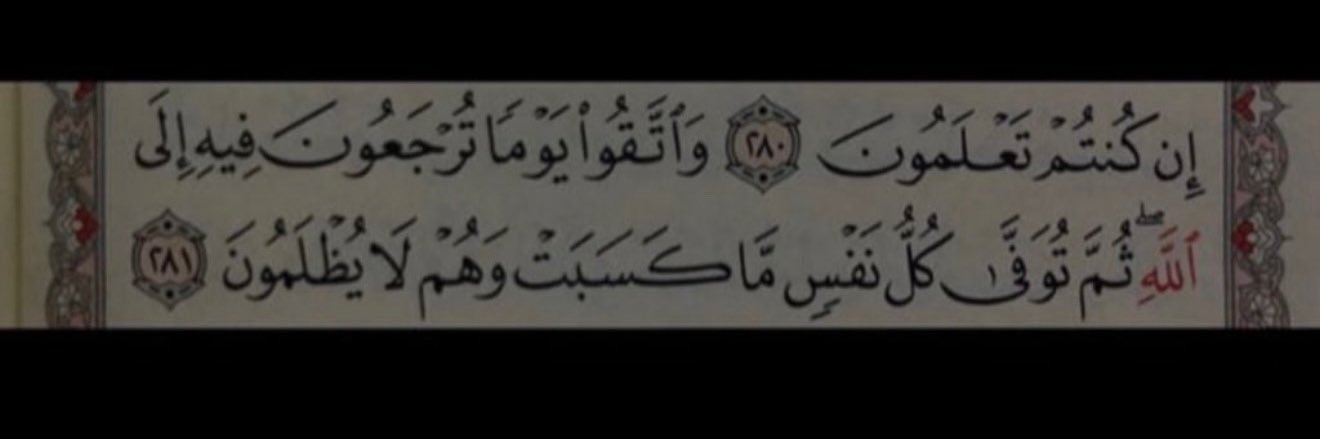 إِن كُنتُمْ تَعْلَمُونَ ٢٨٠ وَٱتَّقُوا۟ يَوْمًا تُرْجَعُونَ فِيهِ إِلَى
ٱللَّهِ ۖ ثُمَّ تُوَفَّىٰ كُلُّ نَفْسٍ مَّا كَسَبَتْ وَهُمْ لَا يُظْلَمُونَ ٢٨١